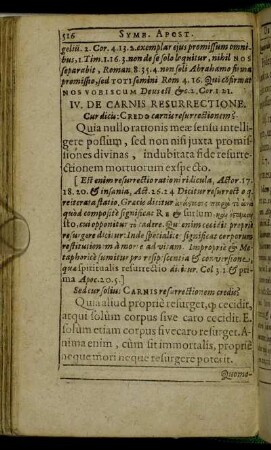 516 SYMB. APOST.
goliũ. 2. Cor. 4. 13. 2. exemplar ejus promissum omni
bus, 1. Tim. 1. 16. 3. non de se solo loquitur, nihil NOS
separabit, Roman. 8. 35. 4. non soli Abrahamo firma
promissio, sed TOTI semini Rom 4. 16. Qui cõfirmat
NOS VOBISCUM Deus est &c. 2. Cor. 1. 21.
IV. DE CARNIS RESURRECTIONE.
Cur dicis: CREDO carnis resurrectionem?
Quia nullo rationis meæ sensu intelli-
gere possum, sed non nisi juxta promis-
siones divinas, indubitata fide resurre-
ctionem mortuorum expecto.
[Est enim resurrectio rationi ridicula, Actor. 17.
18. 20. & insania, Act. 26. 24. Dicitur resurrectio q.
reiterata statio. Græcis dicitur
quod compositè significat RE & sursum
sito, cui opponitur cadere. Quæ enim cecidit propriè
resurgere dicitur: Inde specialiter significat corporum
restitutionem à morte ad vitam. Impropriè & Me-
taphoricè sumitur pro resipiscentia & conversione,
quæ spiritualis resurrectio dicitur. Col. 3. 1 & pri-
ma Apoc. 20. 5.]
Sed cur solius CARNIS resurrectionem credis?
Quia aliud propriè resurget, q̃ cecidit,
atqui solùm corpus sive caro cecidit. E.
solùm etiam corpus sive caro resurget. A-
nima enim, cùm sit immortalis, propriè
neque mori neque resurgere poterit.
Quomo-